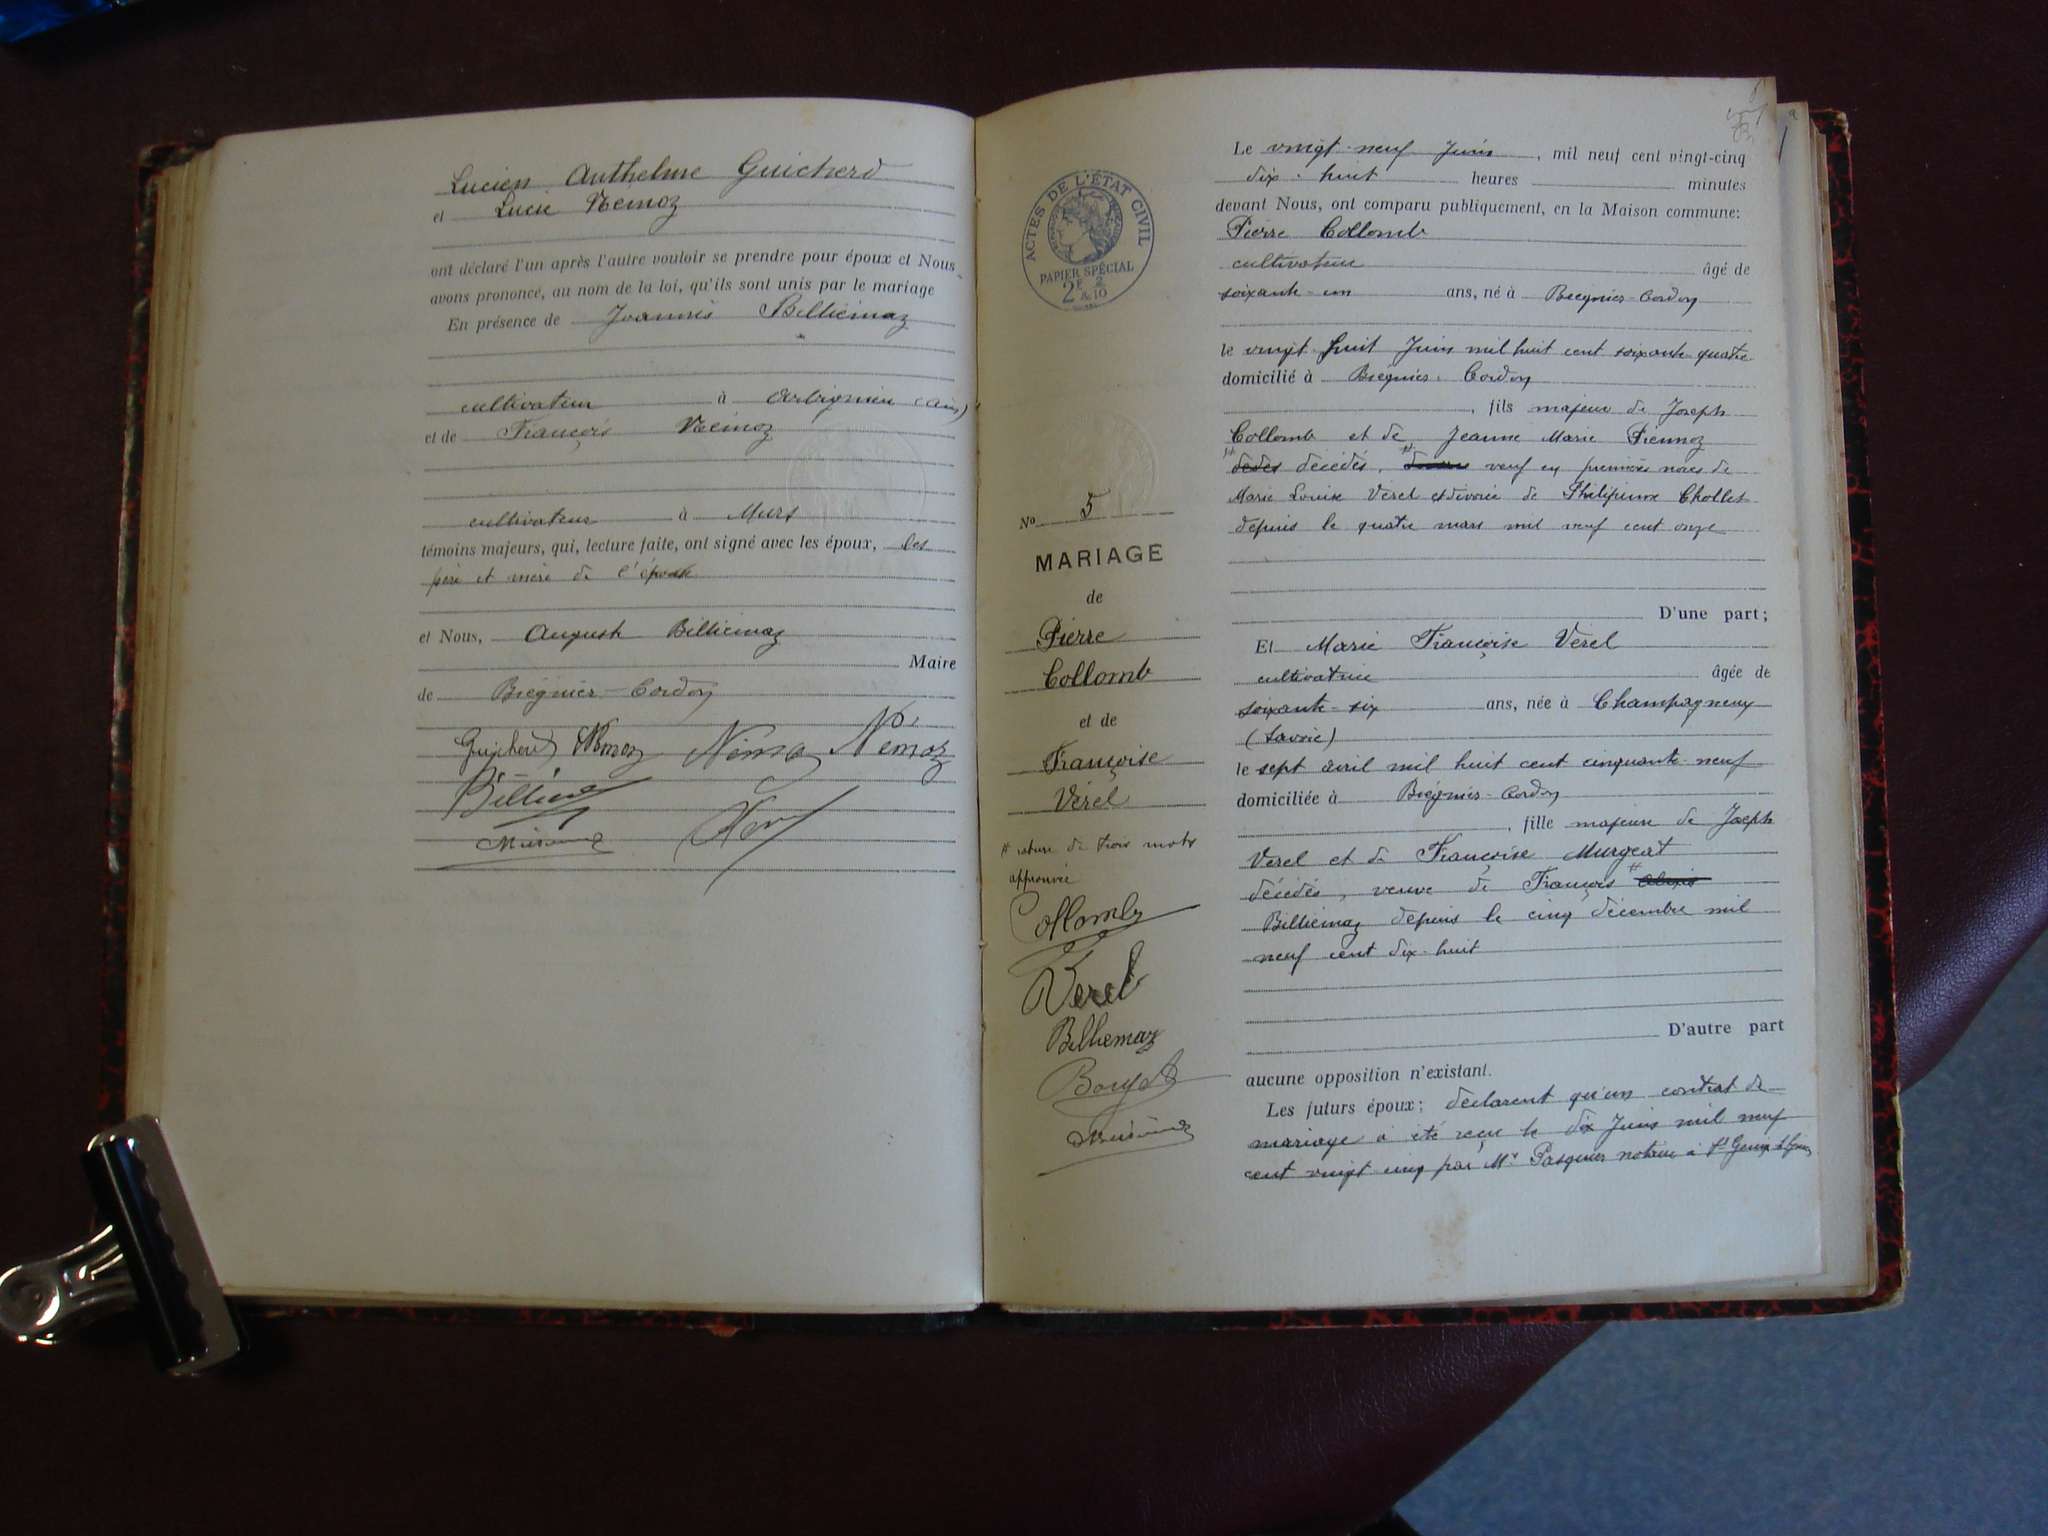 Lucien Anthelme Guicherd
et Lucie Némoz
ont déclaré l'un après l'autre vouloir se prendre pour époux et Nous
avons prononcé, au nom de la loi, qu'ils sont unis par le mariage
En présence de Joannès Billiémaz
cultivateur à Arbignieu (Ain)
et de François Némoz
cultivateur à Murs
témoins majeurs, qui, lecture faite, ont signé avec les époux, les
père et mère de l'épouse
et Nous, Auguste Billiemaz
Maire
de Brégnier-Cordon
Guicherd Némoz Némoz Némoz
ACTES DE L'ÉTAT CIVIL
PAPIER SPÉCIAL
2F 2/10
No 5
MARIAGE
de
Pierre
Collomb
et de
Françoise
Vérel
# rature de trois mots
approuvée
Collomb
Verel
Billiemaz
Le vingt-neuf Juin, mil neuf cent vingt-cinq
dix-huit heures minutes
devant Nous, ont comparu publiquement, en la Maison commune:
Pierre Collomb
cultivateur âgé de
soixante-un ans, né à Brégnier-Cordon
le vingt-huit Juin mil huit cent soixante quatre
domicilié à Brégnier-Cordon
, fils majeur de Joseph
Collomb et de Jeanne Marie
décédés, veuf en premières noces de
Marie Louise Vérel et divorcé de Philipinne Chollet
depuis le quatre mars mil neuf cent onze
D'une part;
Et Marie Françoise Vérel
cultivatrice âgée de
soixante-six ans, née à Champagneux
(Savoie)
le sept avril mil huit cent cinquante-neuf
domiciliée à Brégnier-Cordon
, fille majeure de Joseph
Vérel et de Françoise Murgeat
décédés, veuve de François
Billiémaz depuis le cinq décembre mil
neuf cent dix-huit
D'autre part
aucune opposition n'existant.
Les futurs époux; déclarent qu'un contrat de
mariage a été reçu le dix Juin mil neuf
cent vingt-cinq par Mr Pasquier notaire à St Genix